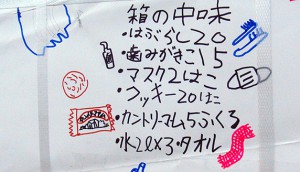 箱の中味
・はぶらし20
・歯みがきこ15
・マスク2はこ
・クッキー20はこ
・カントリーマム5ふくろ
・水2ℓ×3・タオル